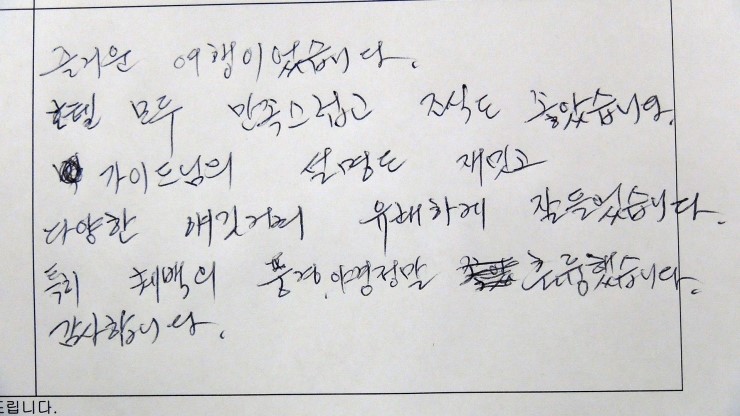 즐거운 여행이었습니다.
호텔 모두 만족스럽고 조식도 좋았습니다.
가이드님의 설명도 재밌고
다양한 얘깃거리 유쾌하게 잘들었습니다.
특히 체백의 풍경,야경정말 훌륭했습니다.
감사합니다.
드립니다.